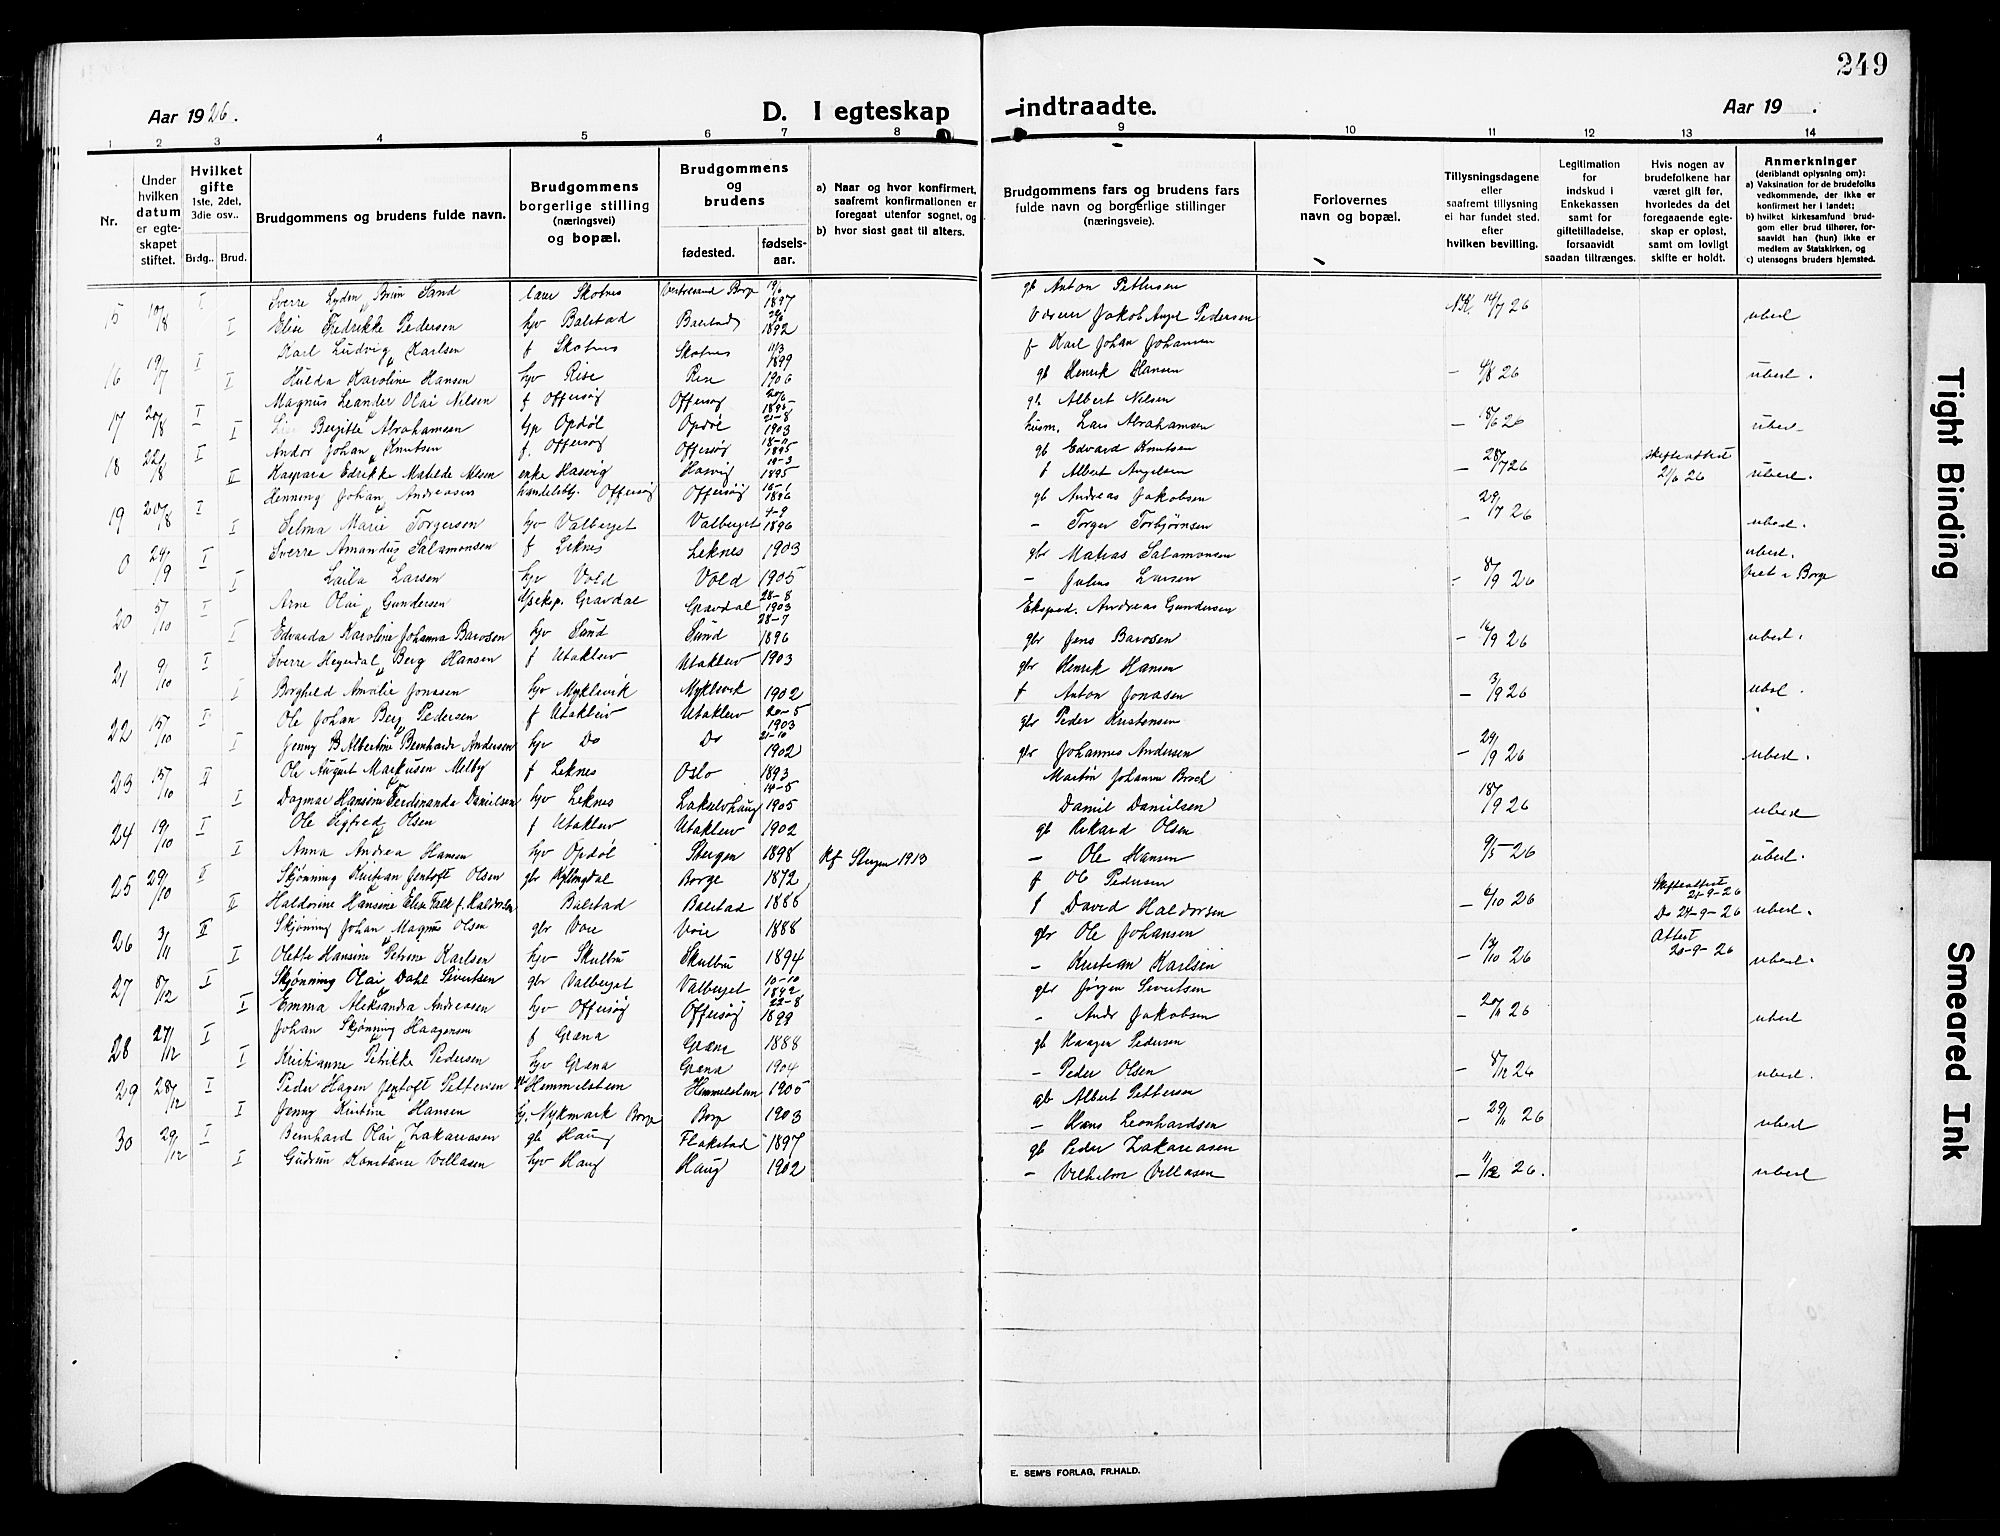 249
Aar 1926.
D. I egteskap
indtraadte.
Aar 19 .
1 2 3 4 5 6 7 8 9 10 11 12 13 14
Nr.
Under hvilken datum er egteskapet stiftet.
Hvilket gifte 1ste, 2det, 3die osv..
Brdg.. Brud.
Brudgommens og brudens fulde navn.
Brudgommens borgerlige stilling (næringsvei) og bopæl.
Brudgommens og brudens
fødested. fødselsaar.
a) Naar og hvor konfirmert, saafremt konfirmationen er foregaat utenfor sognet, og
b) hvor sidst gaat til alters.
Brudgommens fars og brudens fars fulde navn og borgerlige stillinger (næringsveie).
Forlovernes navn og bopæl.
Tillysningsdagene eller saafremt tillysning ei har fundet sted. efter hvilken bevilling.
Legitimation for indskud i Enkekassen samt for giftetilladelse, forsaavidt saadan tiltrænges.
Hvis nogen av brudefolkene har været gift før, hvorledes da det foregaaende egteskap er opløst, samt om lovligt skifte er holdt.
Anmerkninger (deriblandt oplysning om):
a) Vaksination for de brudefolks vedkommende, der ikke er konfirmert her i landet;
b) hvilket kirkesamfund brudgom eller brud tilhører, forsaavidt han (hun) ikke er medlem av Statskirken, og
c) utensogns bruders hjemsted.
15 10/8 I Sverre Lyder Brun Sand Skotnes 1897 Anton Pettersen
I Elise Fredrikke Pedersen hjv Balstad Balstad 1892 Jakob Angel Pedersen 14/7 26 uberl
16 19/7 I Karl Ludvig Karlsen f Skotnes Skotnes 11/3 1899 f Karl Johan Johansen
I Hulda Karoline Hansen hjv Rise Rise 1906 gb Henrik Hansen – 4/8 26 uberl.
17 20/8 I Magnus Leander Olai Nilsen f Offersøy Offersøy 1895 gb Albert Nilsen
I Bergitte Abrahamsen hjv Opdøl Opdøl 21-8 1903 husm. Lars Abrahamsen – 18/6 26 uberl
18 22/8 I Andor Johan Knutsen f. Offersøy Offersøy 18-11 1895 gb Edvard Knutsen
II Kaspara Edrikke Matilde Olsen enke Hasvig Hasvig 1895 f Albert Angelsen – 28/7 26 Skifteattest 2/6 26 uberl.
19 20/8 I Henning Johan Andreasen Offersøy Offersøy 1896 gb Andreas Jakobsen
I Selma Marie Torgersen hjv Valberget Valberget 4-9 1896 – Torger Torbjørnsen – 29/7 26 uberl.
0 24/9 I Sverre Amandus Salamonsen f Leknes Leknes 1903 gbr Matias Salamonsen uberl.
I Laila Larsen hjv Vold Vold 1905 – Julius Larsen – 8/9 26 Viet i Borge
20 5/10 I Arne Olai Gundersen Gravdal Gravdal 28-8 1903 Eksped. Andreas Gundersen
I Edvarda Karoline Johanna Barosen hjv Sund Sund 28-7 1896 gbr Jens Barosen – 16/9 26 uberl.
21 9/10 I Sverre Hegerdal Berg Hansen f Utakleiv Utakleiv 1903 gbr Henrik Hansen
I Borghild Amalie Jonasen hjv Myklevik Myklevik 1902 f Anton Jonasen – 3/9 26 uberl.
22 15/10 I Ole Johan Berg Pedersen f Utakleiv Utakleiv 20-5 1903 gbr Peder Kristensen
I Jenny B Albertine Bernharda Andersen hjv Do Do 21-10 1902 gbr Johannes Andersen – 29/9 26 uberl.
23 15/10 II Ole August Markusen Melby f Leknes Oslo 1893
I Dagmar Hansine Ferdinanda Danielsen hjv Leknes 14-5 1905 Daniel Danielsen 18/9 26 uberl
24 19/10 I Ole Sigfred Olsen f Utakleiv Utakleiv 1902 gb Rikard Olsen
I Anna Andrea Hansen hjv Opdøl Steigen 1898 Kf Steigen 1913 – Ole Hansen 9/5-26 uberl.
25 29/10 II Skjønning Kristian Jentoft Olsen gbr Kyllingdal Borge 1872 f Ole Pedersen
II Haldorine Hansine Elise Falk f. Haldorsen Balstad Balstad 1886 f David Haldorsen – 6/10 26 Skifteattest 21-9-26 Do 24-9-26 uberl.
26 3/11 II Skjønning Johan Magnus Olsen gbr Voie Voie 1888 gbr Ole Johansen Attest 20-9-26
I Olette Hansine Petrine Karlsen hjv Skulbru Skulbru 1894 – Kristian Karlsen – 13/10 26 uberl.
27 8/12 I Skjønning Olai Dahl Sivertsen gbr Valberget Valberget 10-10 1892 gbr Jørgen Sivertsen
I Emma Aleksandra Andreasen hjv Offersøy Offersøy 22-8 1899 – Andr Jakobsen – 20/11 26 uberl
28 27/12 I Johan Skjønning Haagensen f Græna Græna 1888 gb Haagen Pedersen
I Kristianne Petrikke Pedersen hjv Græna Græna 1904 – Peder Olsen – 8/12 26 uberl.
29 28/12 I Peder Hagen Jentoft Pettersen Hemmelstein Hemmelstein 1905 gb Albert Pettersen
I Jenny Kristine Hansen hj. Nykmark Borge Borge 1903 – Hans Leonhardsen – 29/11 26 uberl
30 29/12 I Bernhard Olai Zakariasen gb Haug Flakstad 1897 gb Peder Zakariasen
I Gudrun Konstanse Villasen hjv Haug Haug 1902 – Vilhelm Villasen – 11/12 26. uberl
E. SEM'S FORLAG, FR.HALD.
Tight Binding
Smeared Ink